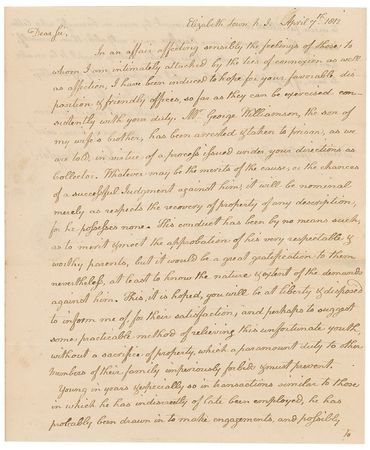 Elizabeth town N. J. April 7th. 1812
Dear Sir,
In an affair affecting sensibly the feelings of those, to
whom I am intimately attached by the ties of connexion as well
as affection, I have been induced to hope for your favorable dis-
position & friendly offices, so far as they can be exercised con-
sistently with your duty. Mr. George Williamson, the son of
my wife's brother, has been arrested & taken to prison, as we
are told, in virtue of a process issued under your directions as
Collector. Whatever may be the merits of the cause, or the chances
of a successful Judgment against him; it will be nominal
merely as respects the recovery of property of any description,
for he possesses none. His conduct has been by no means such,
as to merit & meet the approbation of his very respectable &
worthy parents, but it would be a great gratification to them
nevertheless, at least to know the nature & extent of the demands
against him. This, it is hoped, you will be at liberty & disposed
to inform me of, for their satisfaction, and perhaps to suggest
some practicable method of relieving this unfortunate youth,
without a sacrifice of property, which a paramount duty to other
members of their family imperiously forbids & must prevent.
Young in years & especially so in transactions similar to those
in which he has indiscreetly of late been employed, he has
probably been drawn in to make engagements, and possibly
to